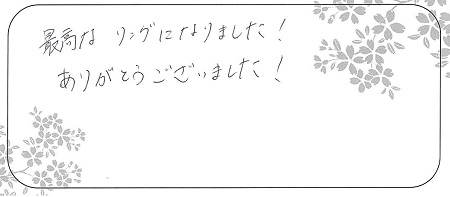 最高な リングになりました！
ありがとうございました！